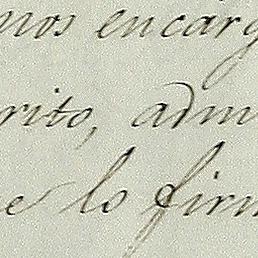 mos encarg
rito, adm
e lo firm